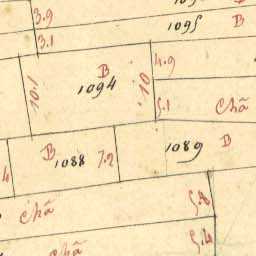 3.9
1095 B
3.1
B
1094
10.1
10
4.9
5.1 Chã
B
1088 7.2
1089 B
4
Chã
5.8
5.4
Chã